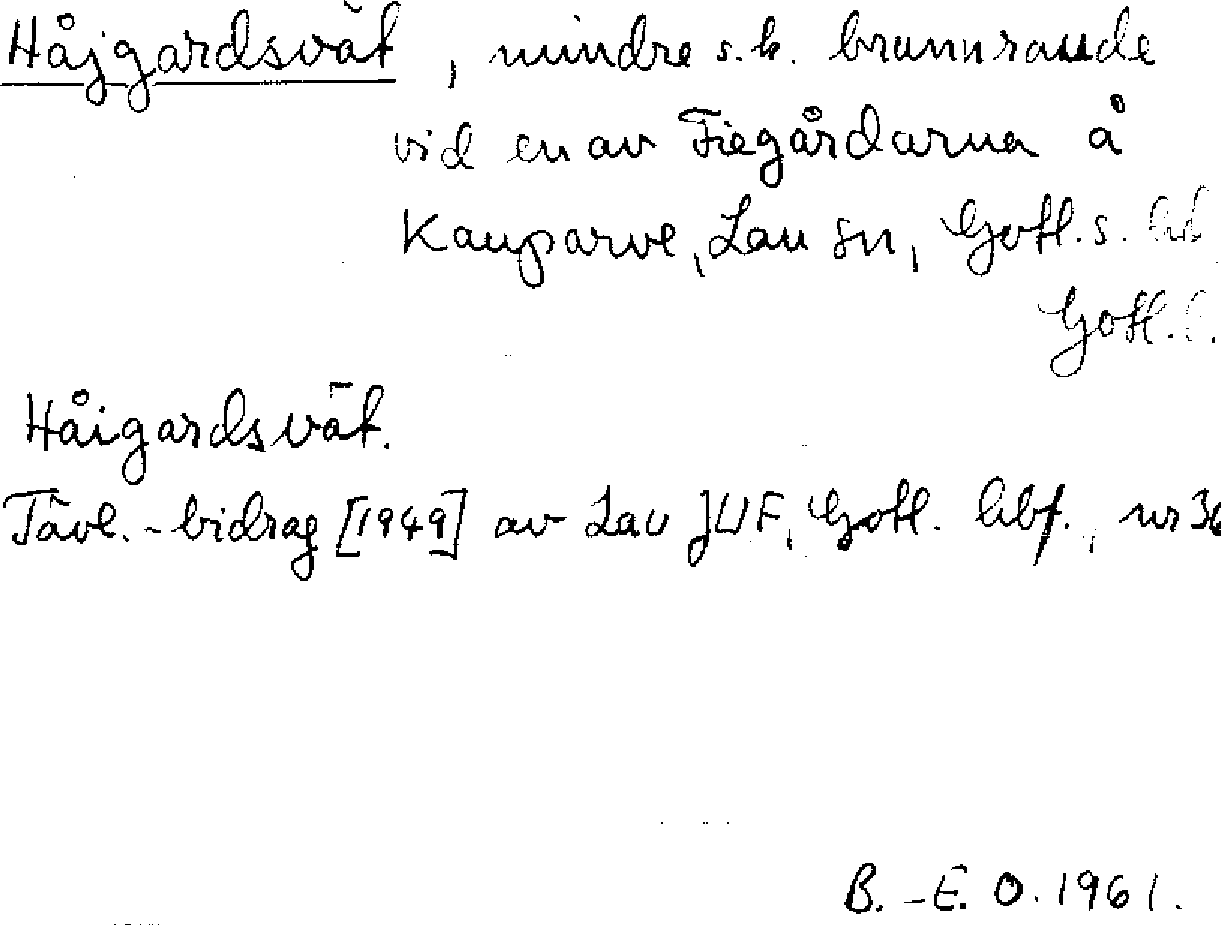 Håjgardsvät, mindre s.k. brunnraude
vid en av Fiegårdarna å
Kauparve, Lau sn, Gotl. s. hd
Gotl. l.
Håigardsvät.
Tävl.-bidrag [1949] av Lau JUF, Gotl. hbf., nr 36
B.-E. O. 1961.